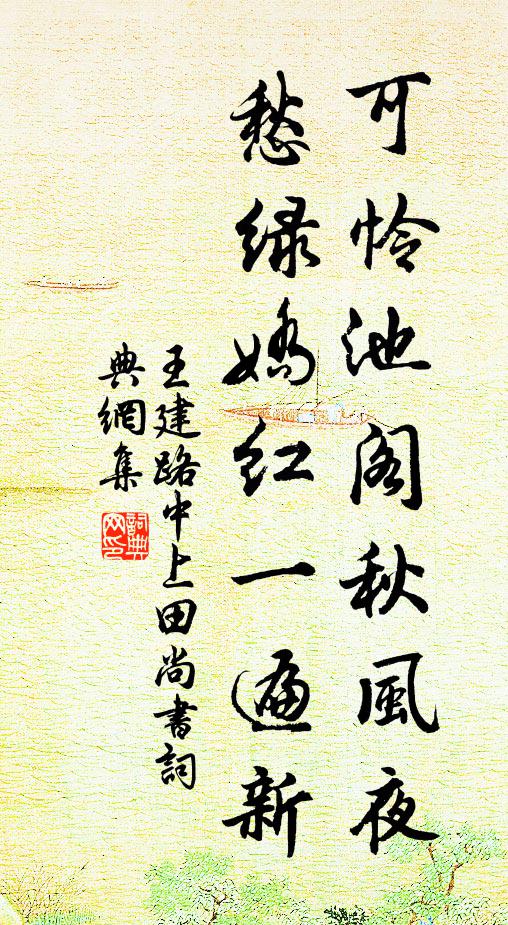 可怜池阁秋風夜
愁绿嬌红一遍新
王建路中上田尚書詞
典網集
詞典
网印